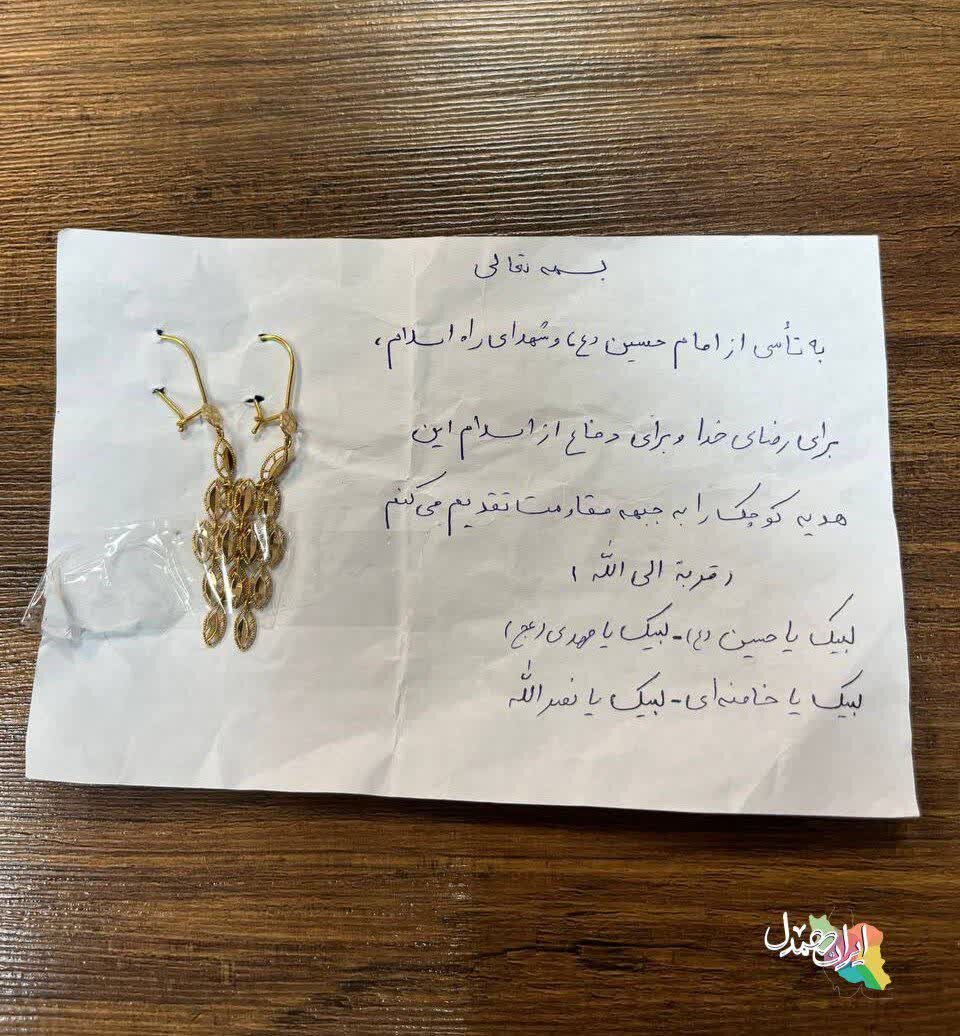 بسمه تعالی
به تأسی از امام حسین (ع) و شهدای راه اسلام،
برای رضای خدا و برای دفاع از اسلام این
هدیه کوچک را به جبهه مقاومت تقدیم می‌کنم
(قربة الی الله)
لبیک یا حسین (ع) - لبیک یا مهدی (عج)
لبیک یا خامنه‌ای - لبیک یا نصرالله
ایران همدل